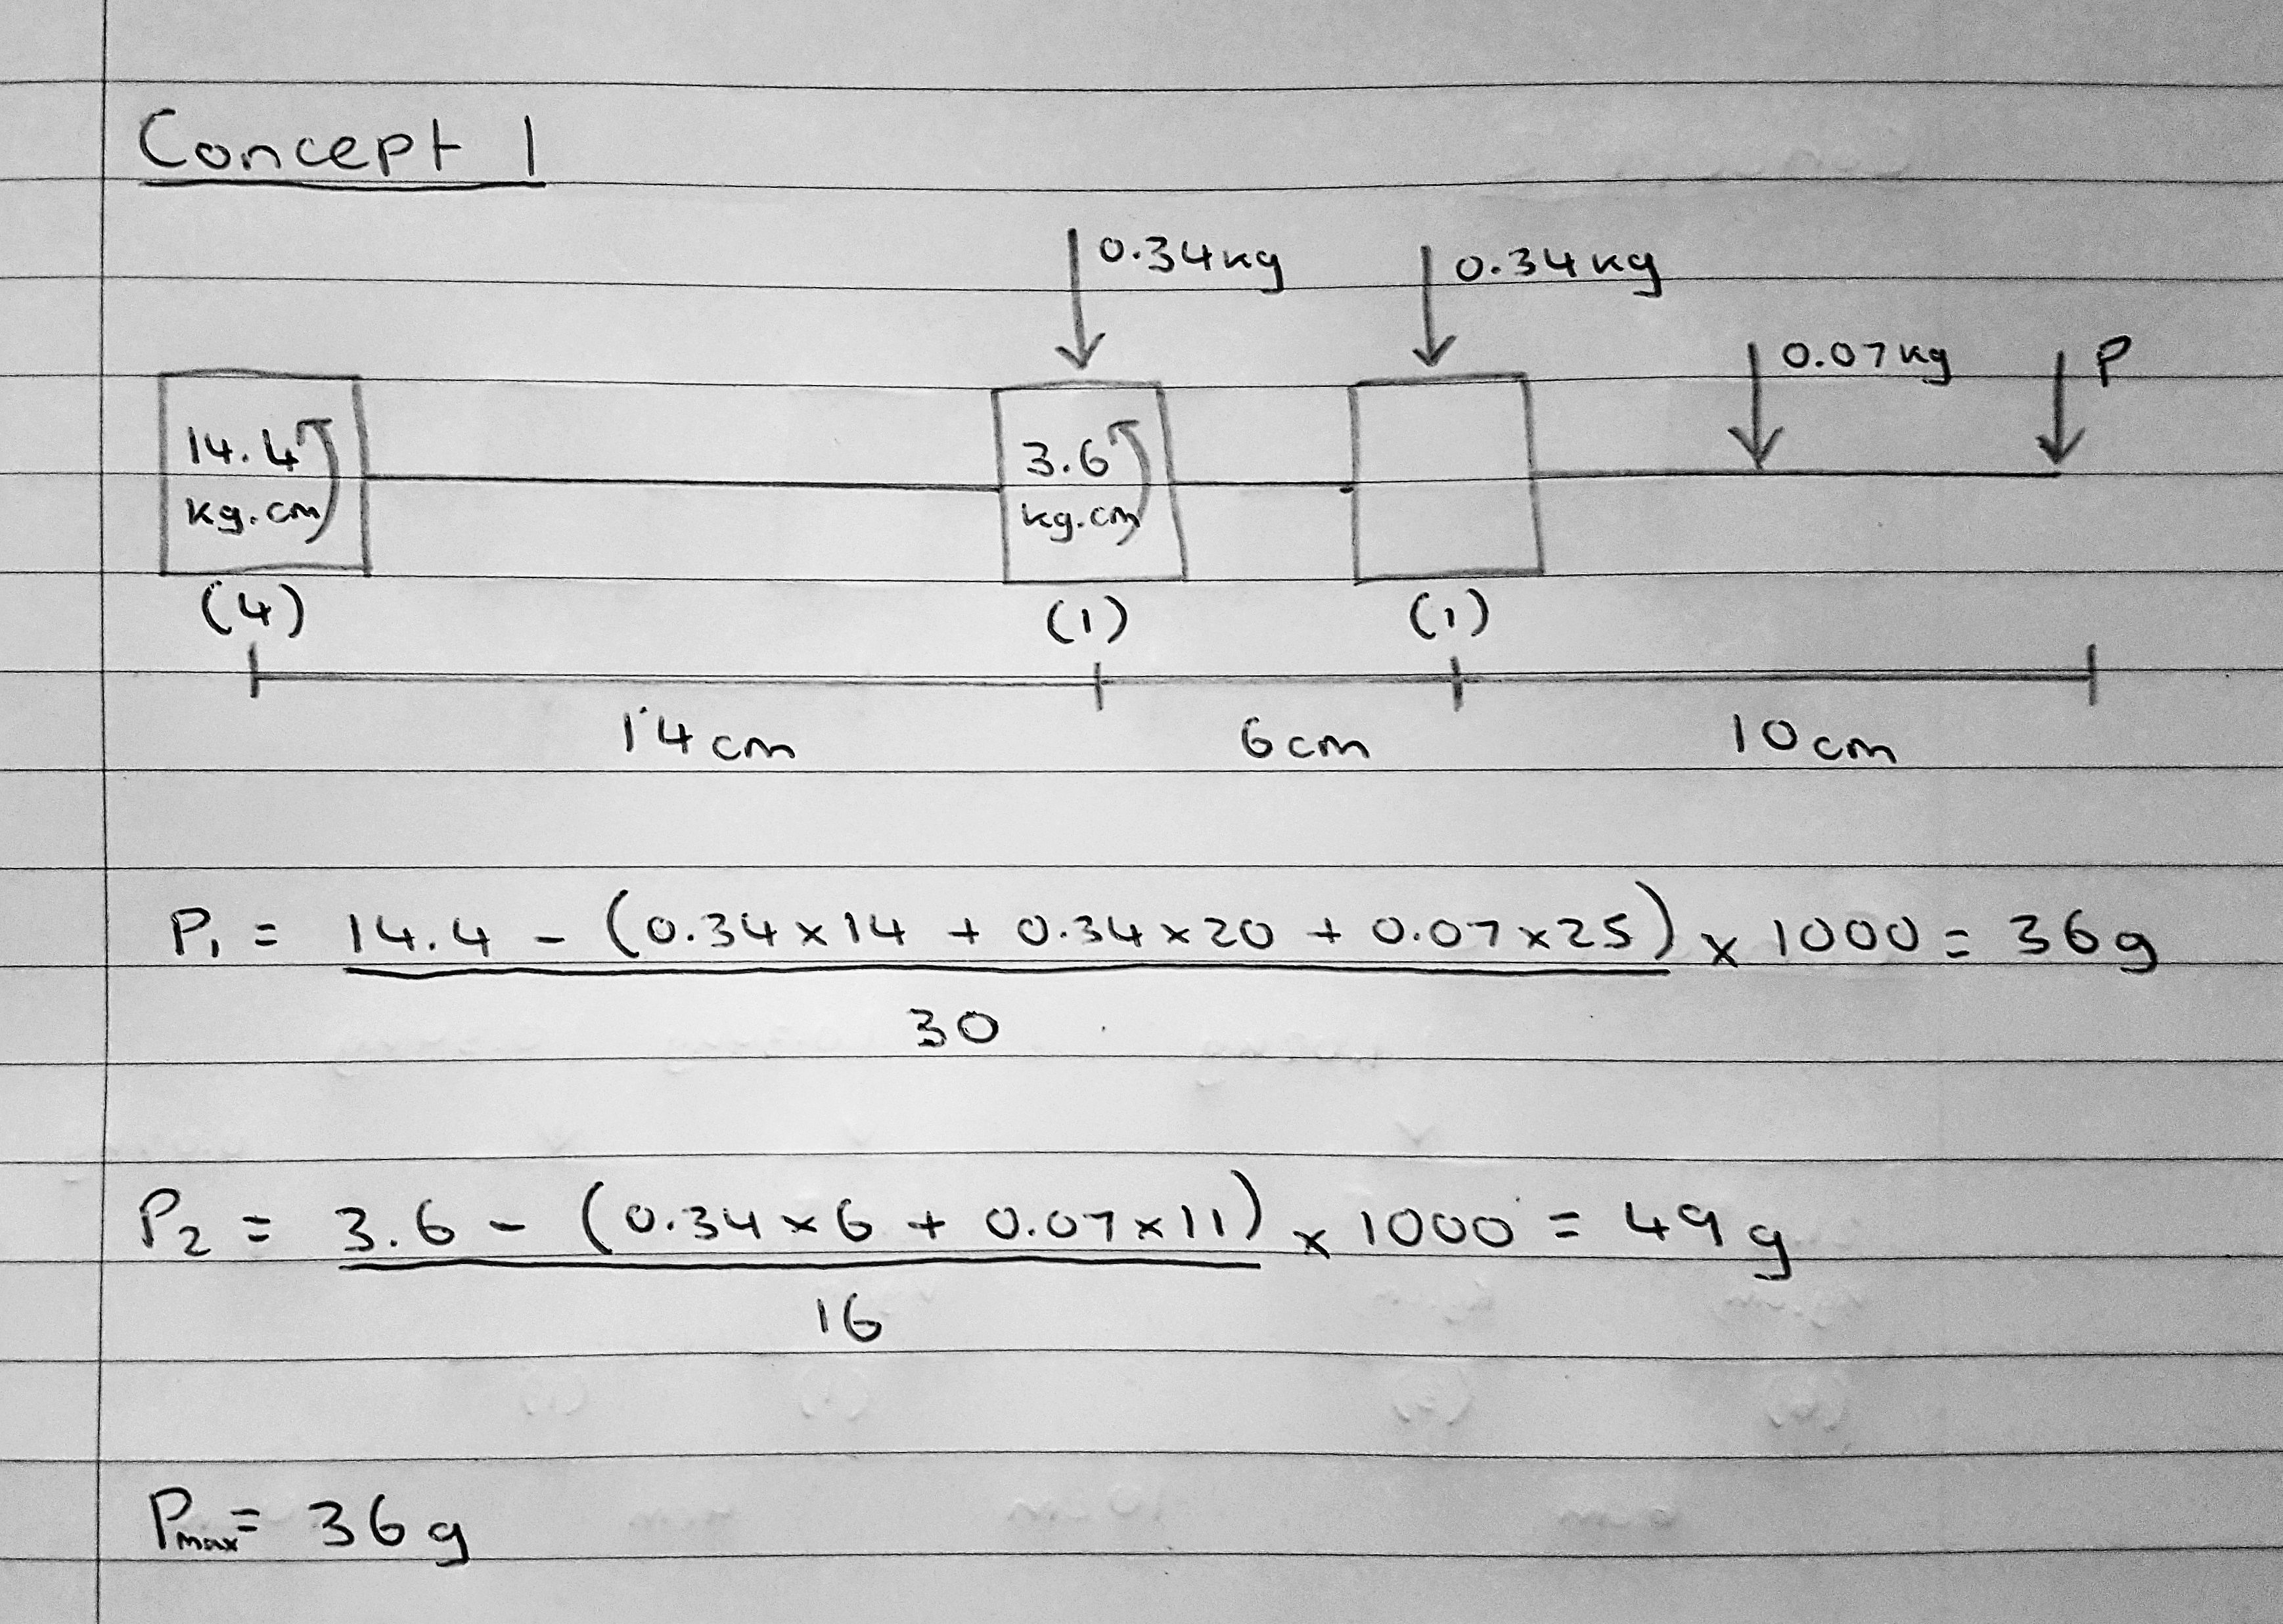 Concept 1
0.34kg
0.34kg
0.07kg
P
14.4
kg.cm
3.6
kg.cm
(4)
(1)
(1)
14cm
6cm
10cm
P₁ = 14.4 - (0.34×14 + 0.34×20 + 0.07×25) × 1000 = 36g
30
P₂ = 3.6 - (0.34×6 + 0.07×11) × 1000 = 49g
16
Pmax = 36g